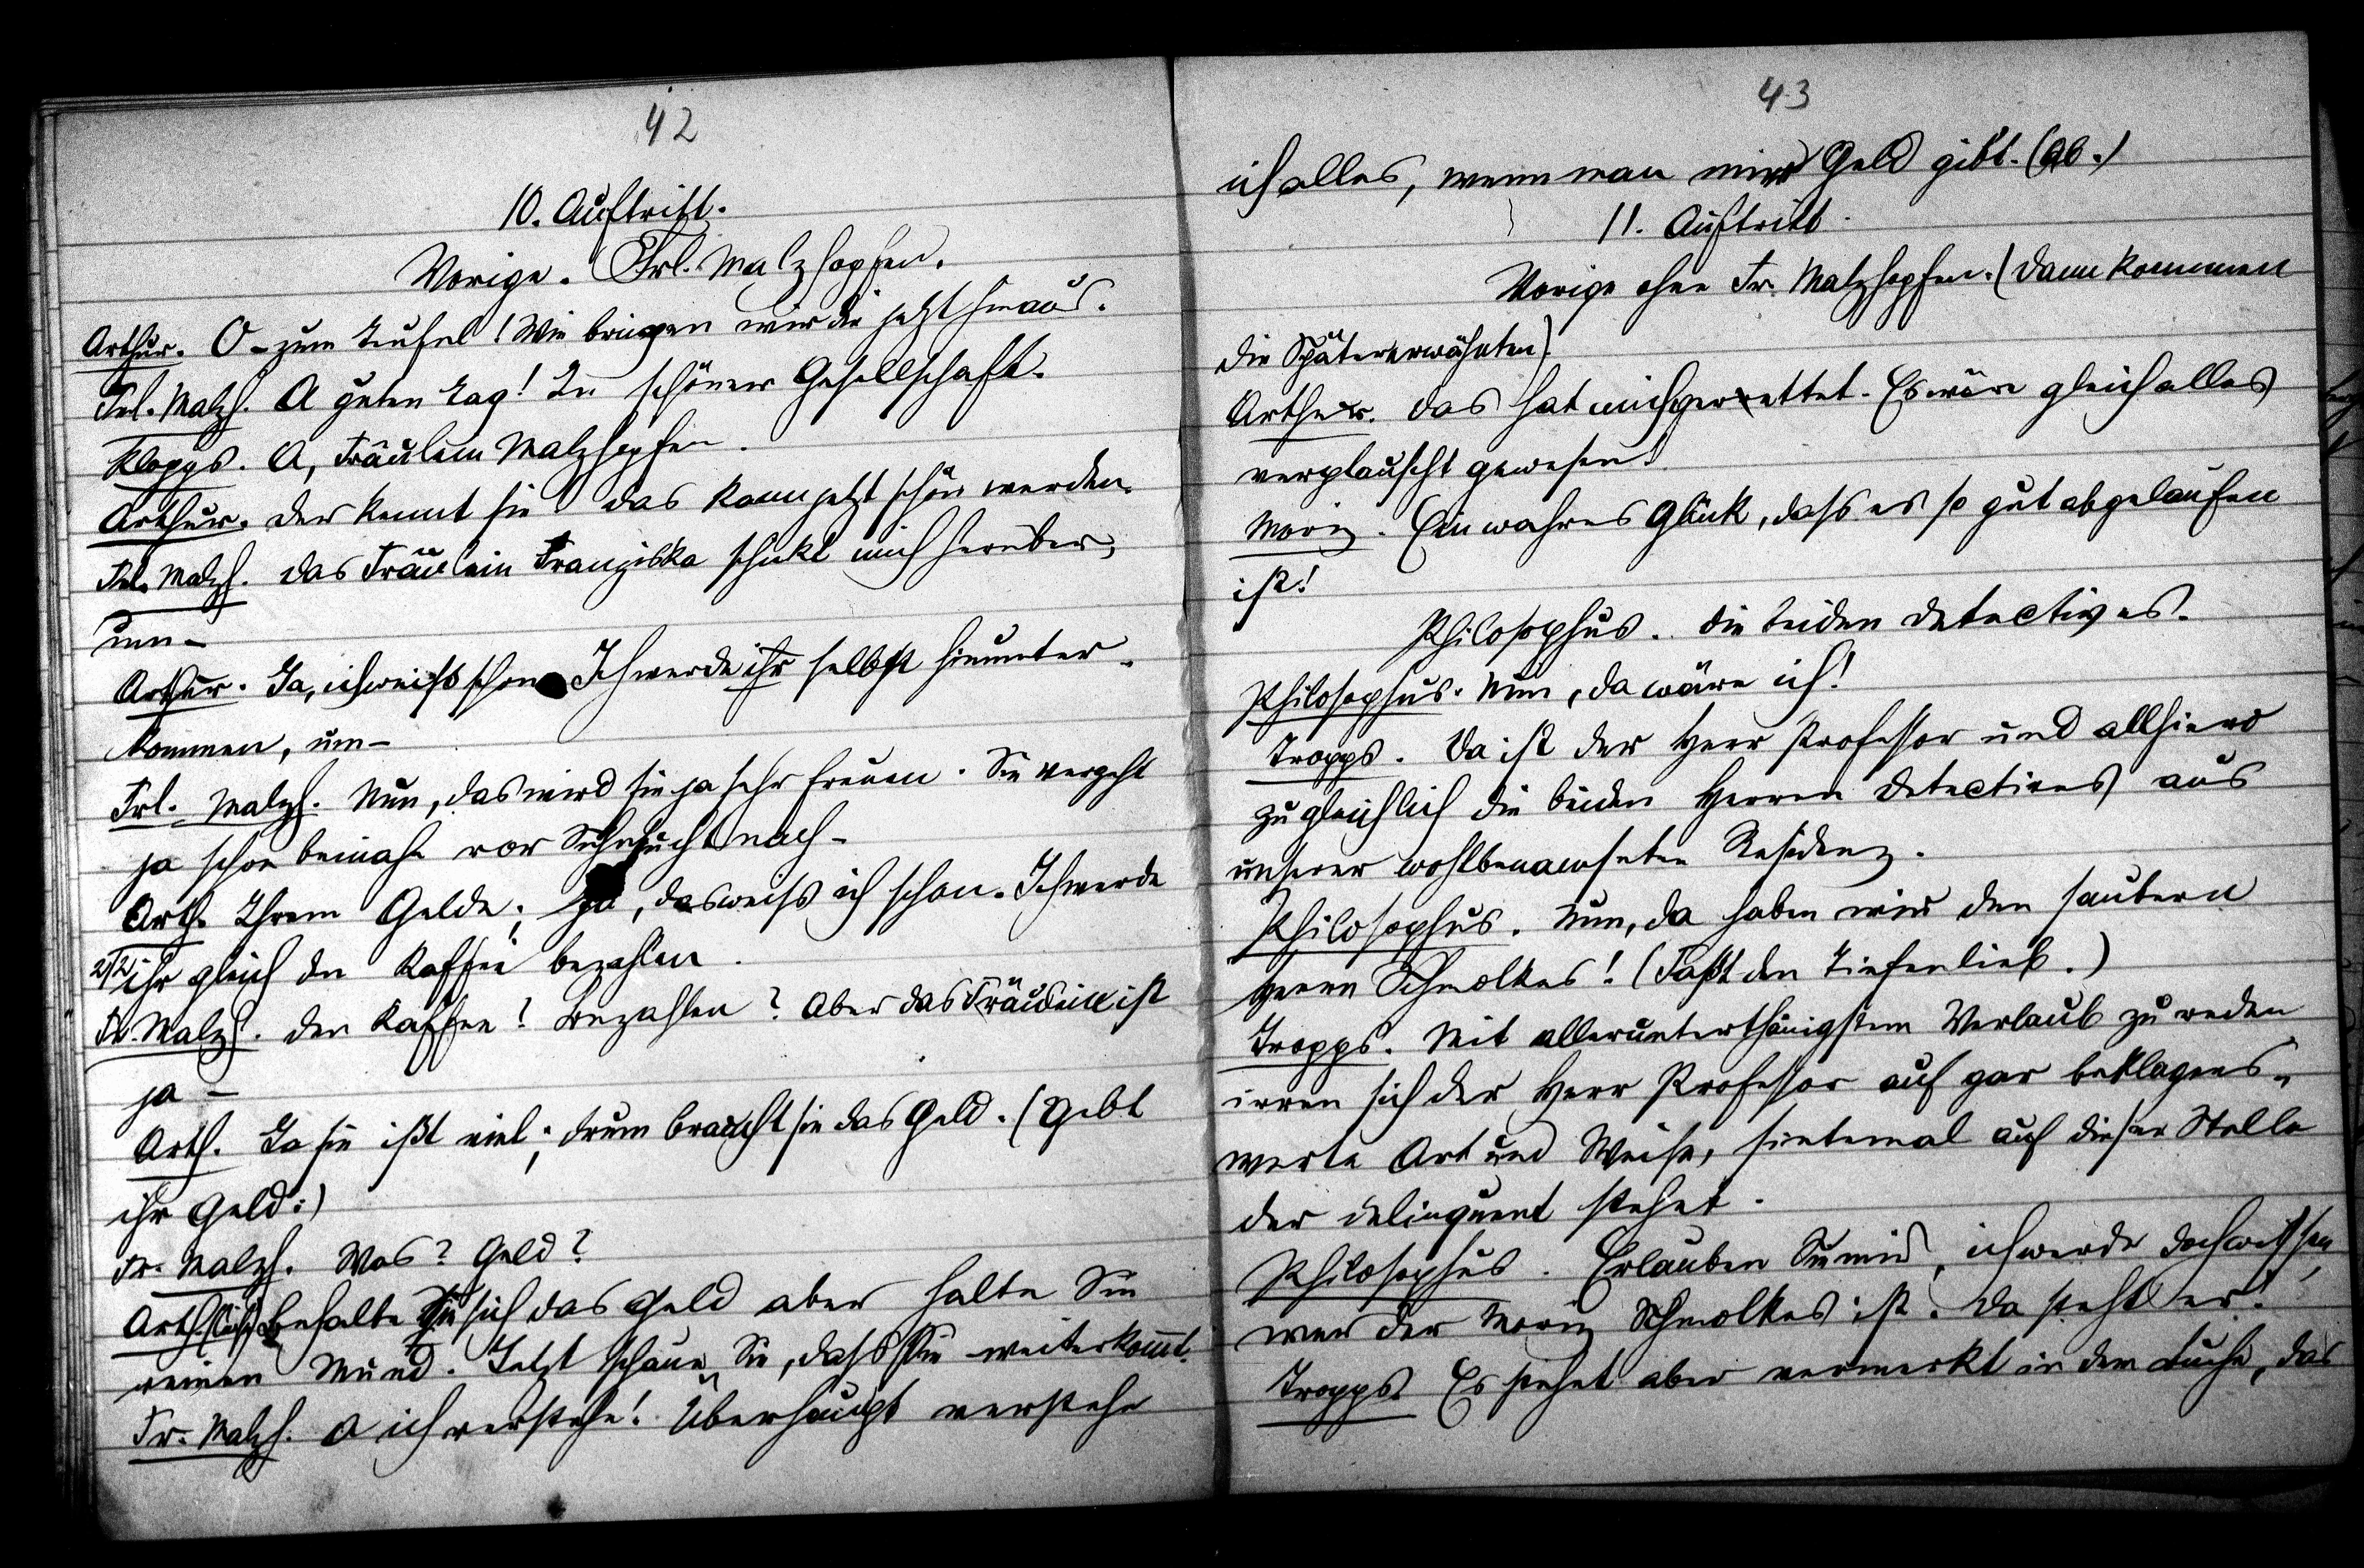 42
10. Auftritt.
Vorige. Frl. Malzhopfen.
Arthur. O – zum Teufel! Wie bringen wir die jetzt hinaus.
Frl. Malzh. A guten Tag! In schöner Gesellschaft.
Klopps. A, Fräulein Malzhopfen.
Arthur. Der kennt sie das kann jetzt schön werden.
Frl. Malzh. Das Fräulein Franziska schickt mich herüber,
um –
Arthur. Ja, ich weiß schon Ich werde ihr selbst hinunter-
kommen, um –
Frl. Malzh. Nun, das wird sie ja sehr freuen. Sie vergeht
ja schon beinahe vor Sehnsucht nach –
Arth. Ihrem Gelde; ja, das weiss ich schon. Ich werde
ihr gleich den Kaffee bezahlen.
Fr. Malzh. Den Kaffee? Bezahlen? Aber das Fräulein ist
ja –
Arth. Ja sie ißt viel; drum braucht sie das Geld. (Gebt
ihr Geld:)
Fr. Malzh. Was? Geld?
Arth. Behalte Sie sich das Geld aber halte Sie
reinen Mund. Jetzt schaun Sie, dass Sie weiterkommt.
Fr. Malzh. A ich verstehe! Überhaupt verstehe
43
ich alles, wenn man mir Geld gibt. (Ab.)
11. Auftritt.
Vorige ohne Fr. Malzhopfen. (Dann kommen
die Spätererwähnten).
Arthur. Das hat mich gerettet. Es wäre gleich alles
verplauscht gewesen!
Moriz. Ein wahres Glück, dass es so gut abgelaufen
ist!
Philosophus. Die beiden Detectives.
Philosophus. Nun, da wäre ich!
Tropps. Da ist der Herr Professor und allhiero
zugleichlich die beiden Herren Detectives aus
unserer wohlbenamseten Residenz.
Philosophus. Nun, da haben wir den saubern
Herrn Schmolkes! (Faßt den Tiefenlieb.)
Tropps. Mit allerunterthänigstem Verlaub zu reden
irren sich der Herr Professor auf gar beklagens-
werte Art und Weise, sintemal auf dieser Stelle
der Delinquent stehet.
Philosophus. Erlauben Sie mir, ich werde doch wissen,
wer der Moriz Schmolkes ist. Da steht er!
Tropps. Es stehet aber vermerkt in dem Buche, das